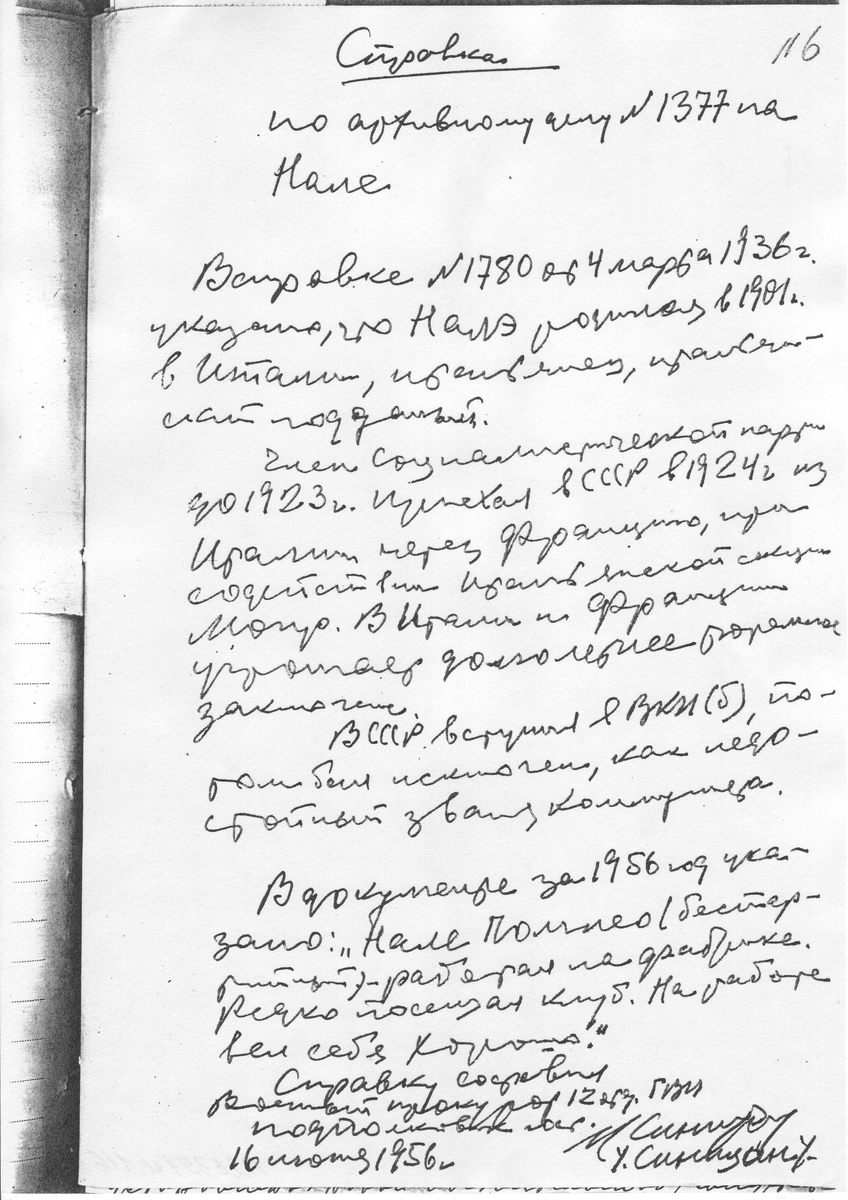 116
Справка
по архивному делу N 1377 на
Нале
В справке N 1780 от 4 марта 1936 г.
указано, что Налэ родился в 1901 г.
в Италии, итальянец, итальян-
ский подданный.
Член социалистической партии
до 1923 г. Приехал в СССР в 1924 г. из
Италии через Францию, при
содействии итальянской секции
Мопр. В Италии и Франции
угрожает долголетнее тюремное
заключение.
В СССР вступил в ВКП(б), по-
том был исключен, как недо-
стойный звания коммуниста.
В документе за 1956 год ука-
зано: „Нале Помпео (беспар-
тийный) - работал на фабрике.
Редко посещал клуб. На работе
вел себя хорошо."
Справку составил
Военный прокурор 12 отд. ГВП
подполковник юст.
16 июня 1956 г.